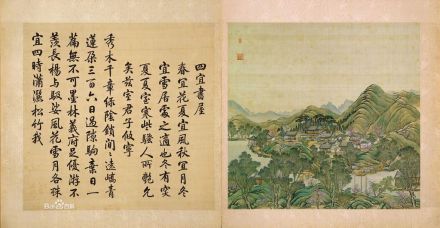 四宜書屋
春宜花夏宜風秋宜月冬
宜雪居處之適也冬有突
夏夏室寒些騷人所艷允
矣茲室君子攸寧
秀木千章綠陰鎖間〻遠嶠青
蓮朵三百六日過隙駒棄日一
篇無不可墨林義府足優游不
羨長楊與馺娑風花雪月各殊
宜四時瀟灑松竹我
Bai百科